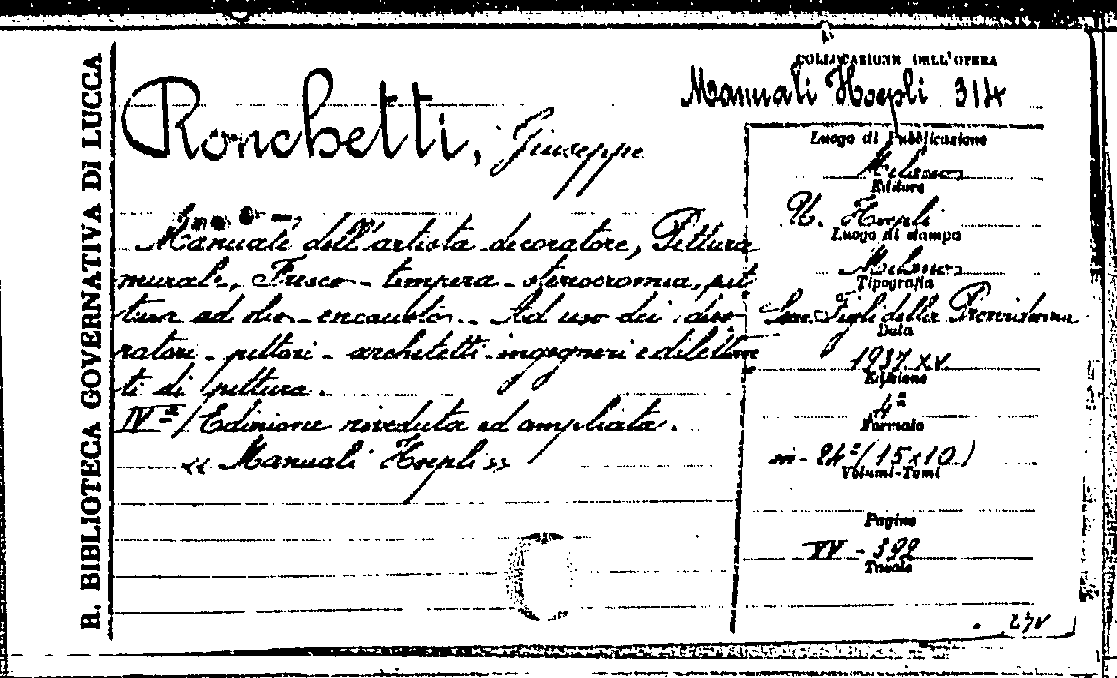 R. BIBLIOTECA GOVERNATIVA DI LUCCA
COLLOCAZIONE DELL'OPERA
Manuali Hoepli 314
Ronchetti, Giuseppe
Manuale dell'artista decoratore, Pittura
murale, Fresco - tempera - stereocromia, pit
tura ad olio - encausto - Ad uso dei deco
ratori - pittori - architetti - ingegneri e dilettan
ti di pittura.
IVª Edizione riveduta ed ampliata.
« Manuali Hoepli »
Luogo di Pubblicazione
Milano
Editore
U. Hoepli
Luogo di stampa
Milano
Tipografia
Figli della Provvidenza
Data
1937 XV
Edizione
4ª
Formato
in - 24° (15x10)
Volumi-Tomi
Pagine
XV - 392
Tavole